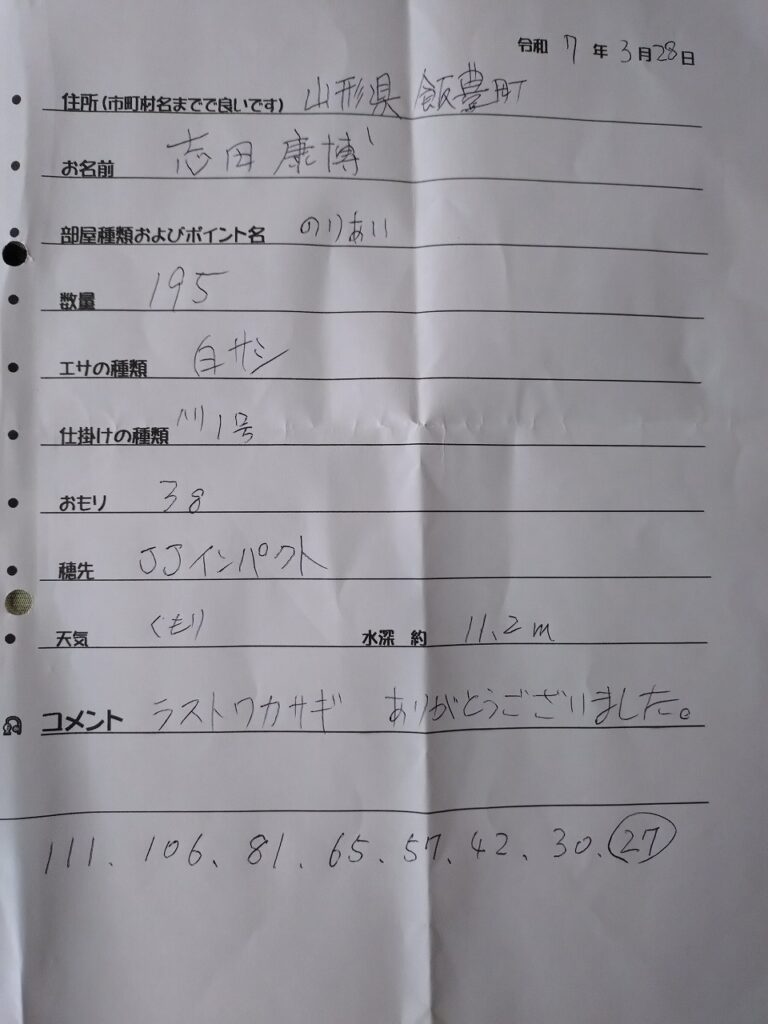 令和 7 年 3 月 28 日
住所(市町材名までで良いです) 山形県 飯豊町
お名前 志田康博
部屋種類およびポイント名 のりあい
数量 195
エサの種類 白サシ
仕掛けの種類 1号
おもり 3g
穂先 JJインパクト
天気 くもり 水深 約 11.2m
コメント ラストワカサギ ありがとうございました。
111、106、81、65、57、42、30、27